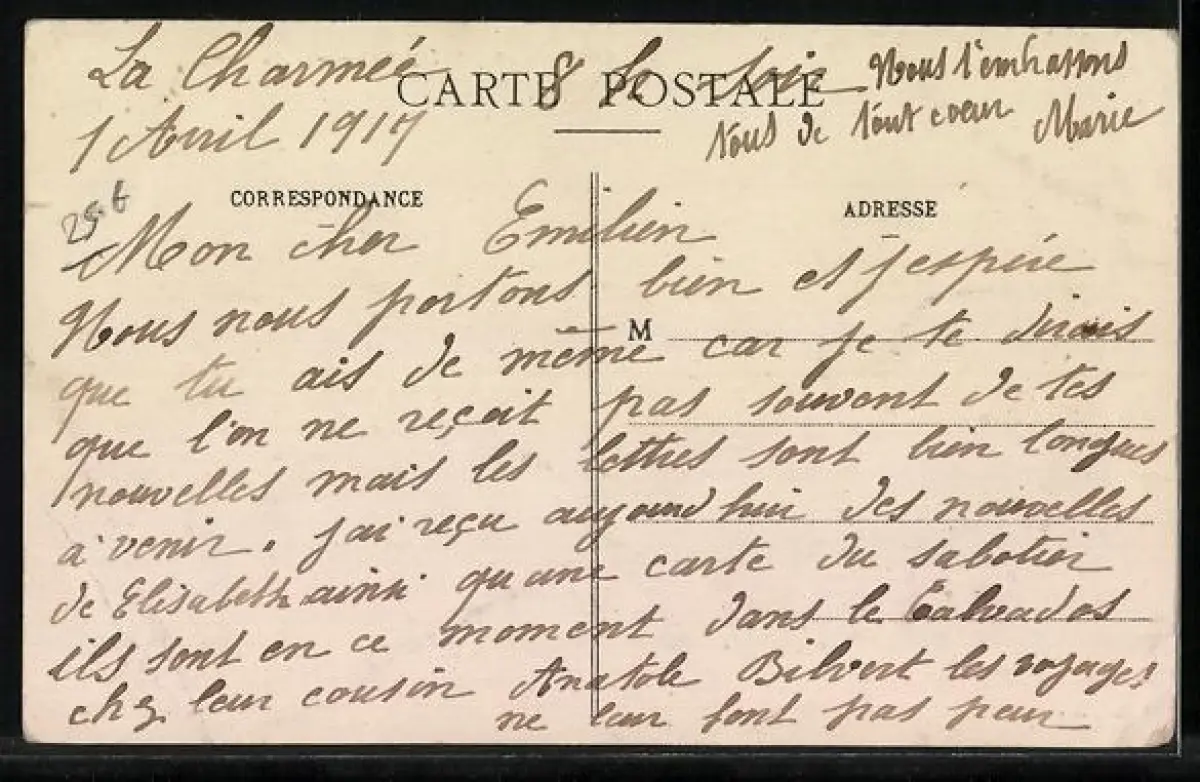 La Charmeé 8 h soir
1 Avril 1917
Nous t'embrassons
tous de tout coeur Marie
CARTE POSTALE
25 t
CORRESPONDANCE
ADRESSE
M
Mon cher Emilien
Nous nous portons bien et j'espère
que tu ais de même car je te dirais
que l'on ne reçoit pas souvent de tes
nouvelles mais les lettres sont bien longues
à venir. J'ai reçu aujourd'hui des nouvelles
de Elisabeth ainsi qu'une carte du sabotier
ils sont en ce moment dans le Calvados
chez leur cousin Anatole Bilvert les voyages
ne leur font pas peur